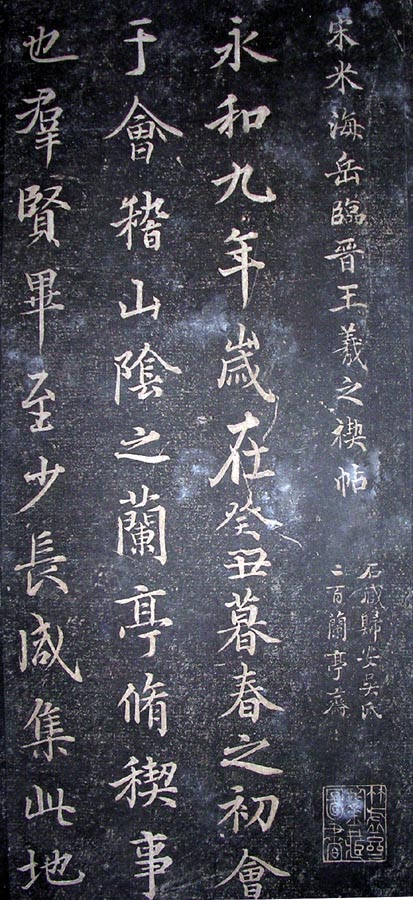 宋米海岳臨晉王羲之禊帖
石藏歸安吳氏
二百蘭亭齋
永和九年歲在癸丑暮春之初會
于會稽山陰之蘭亭脩稧事
也羣賢畢至少長咸集此地